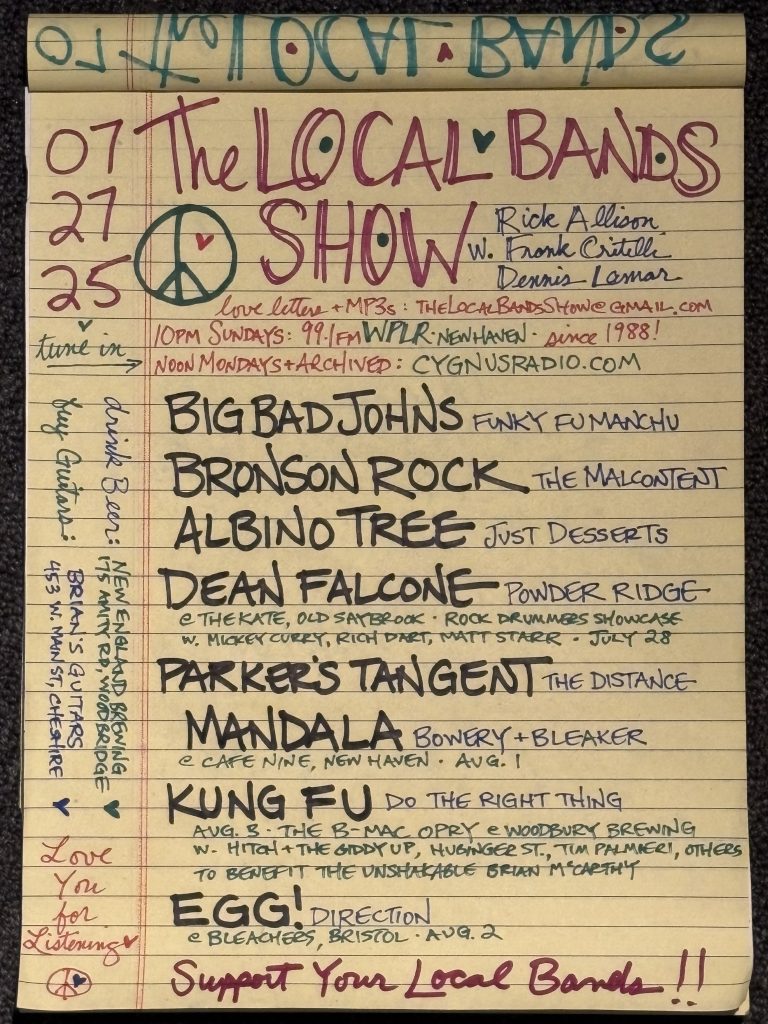 The LOCAL BANDS
07
27
25
The LOCAL BANDS
SHOW
Rick Allison
w. Frank Critelli
Dennis Lamar
love letters + MP3s: THELOCALBANDSSHOW@GMAIL.COM
10PM SUNDAYS: 99.1FM WPLR · NEW HAVEN · since 1988!
tune in
NOON MONDAYS + ARCHIVED: CYGNUSRADIO.COM
BIG BAD JOHNS FUNKY FU MANCHU
BRONSON ROCK THE MALCONTENT
ALBINO TREE JUST DESSERTS
DEAN FALCONE POWDER RIDGE
@ THE KATE, OLD SAYBROOK · ROCK DRUMMERS SHOWCASE
W. MICKEY CURRY, RICH DART, MATT STARR · JULY 28
PARKER'S TANGENT THE DISTANCE
MANDALA BOWERY + BLEAKER
@ CAFE NINE, NEW HAVEN · AUG. 1
KUNG FU DO THE RIGHT THING
AUG. 3 · THE B-MAC OPRY @ WOODBURY BREWING
W. HITCH + THE GIDDY UP, HUBINGER ST., TIM PALMIERI, OTHERS
TO BENEFIT THE UNSHAKABLE BRIAN McCARTHY
EGG! DIRECTION
@ BLEACHERS, BRISTOL · AUG. 2
Support Your Local Bands!!
drink Beer: NEW ENGLAND BREWING
175 AMITY RD, WOODBRIDGE
buy Guitars: BRIAN'S GUITARS
453 W. MAIN ST, CHESHIRE
Love
You
for
Listening